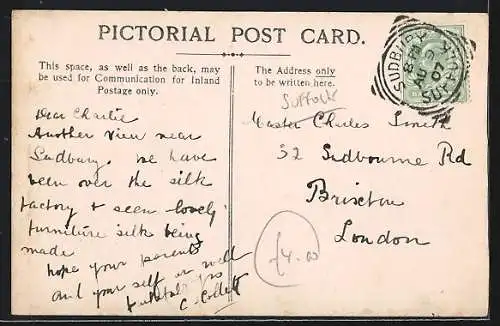 PICTORIAL POST CARD.
This space, as well as the back, may
be used for Communication for Inland
Postage only.
The Address only
to be written here.
Dear Charlie
Another View near
Sudbury. We have
been over the silk
factory & seen lovely
furniture silk being
made
hope your parents
and your self are well
yrs
C. Collett
SUFFOLK
Master Charles Smith
32 Sudbourne Rd
Brixton
London
£4.00
SUDBURY
07
SUFFOLK